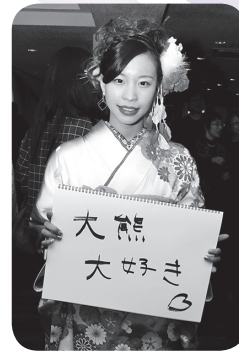 大熊
大好き